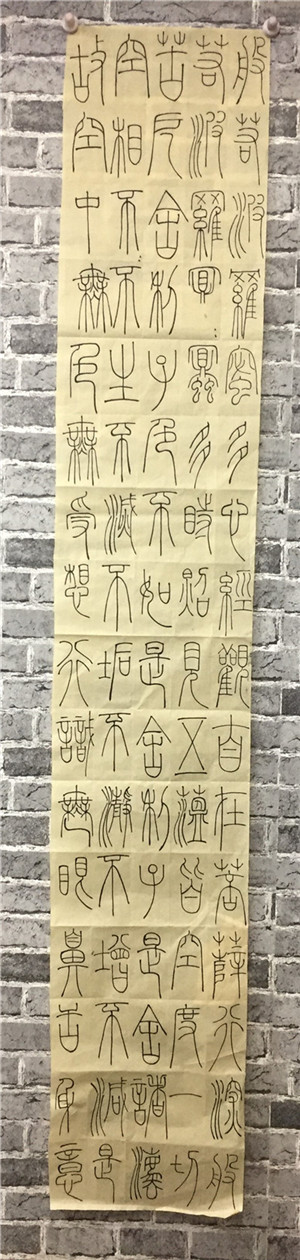 般若波羅蜜多心經觀自在菩薩行深般
若波羅蜜多時照見五蘊皆空度一切
苦厄舍利子色不如是舍利子是舍諸灋
空相不不生不滅不垢不瀞不增不減是
故空中無色無受想行識無眼鼻舌身意